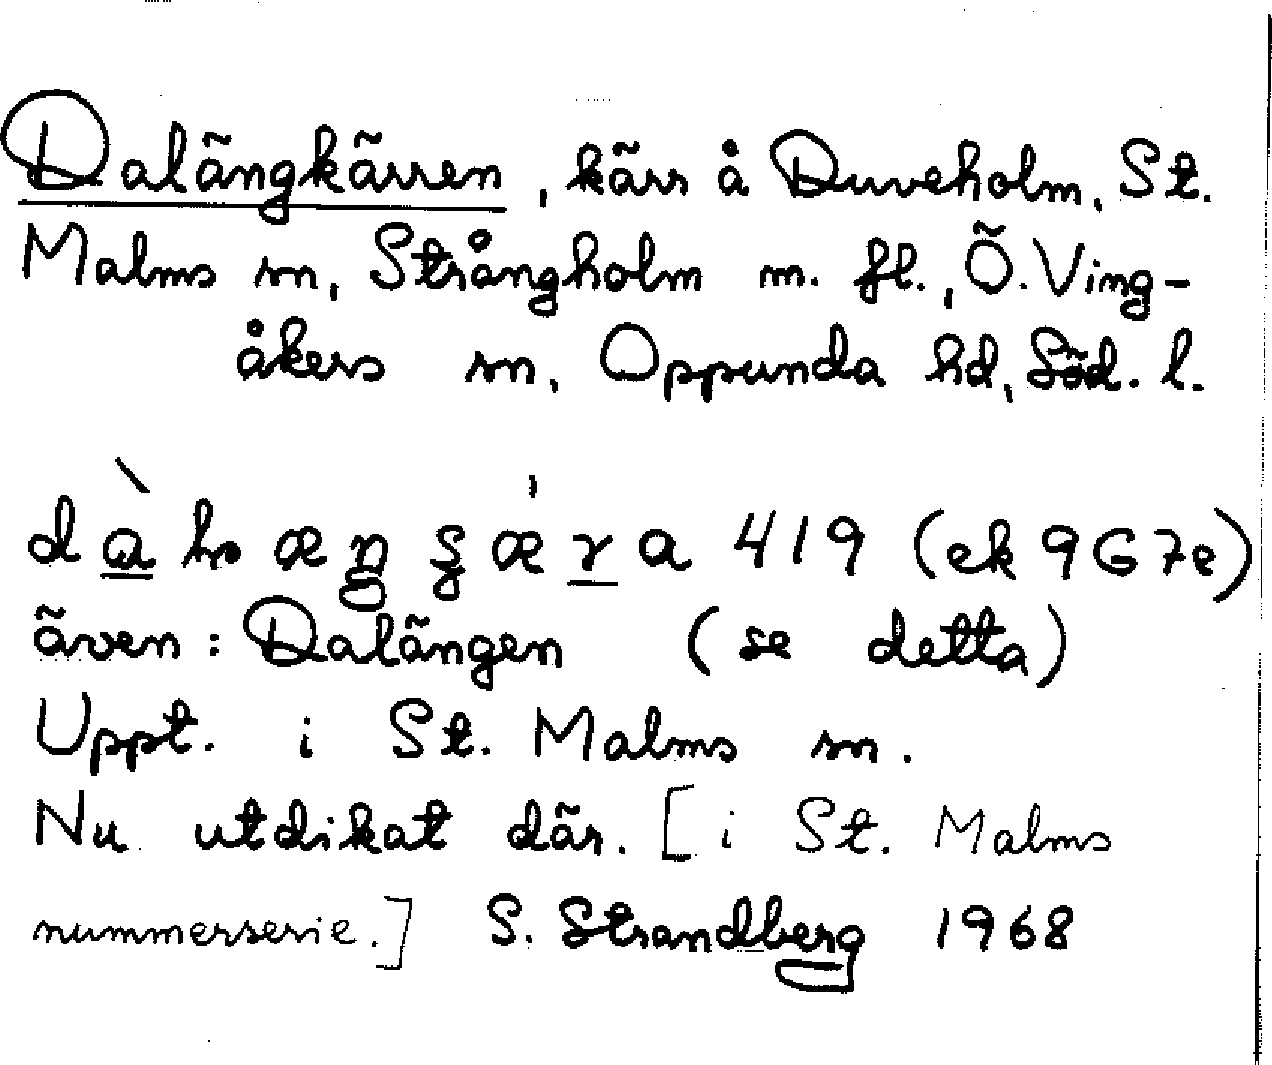 Dalängkärren, kärr å Duveholm, St.
Malms sn, Strångholm m. fl., Ö. Ving-
åkers sn, Oppunda hd, Söd. l.
419 (ek 9G7e)
även: Dalängen (se detta)
Uppt. i St. Malms sn.
Nu utdikat där. [i St. Malms
nummerserie.] S. Strandberg 1968